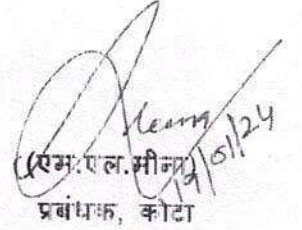 Meena
19/01/24
(एम.एल.मीना)
प्रबंधक, कोटा